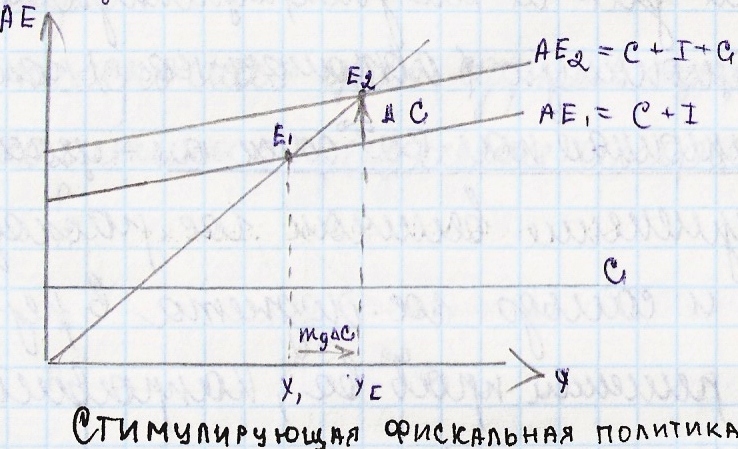 AE
AE₂ = C + I + G
E2
Δ G
AE₁ = C + I
E₁
G
mgΔG
Y₁
Y₂
Y
Стимулирующая фискальная политика